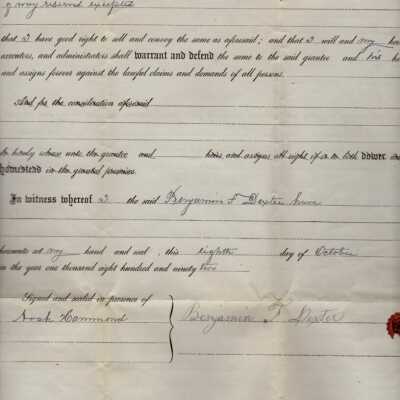 of way reserved excepted
that I have good right to sell and convey the same as aforesaid; and that I will and my
executors, and administrators shall warrant and defend the same to the said grantee and his
and assigns forever against the lawful claims and demands of all persons.
And for the consideration aforesaid
do hereby release unto the grantee and heirs and assigns all right of or to both dower and
homestead in the granted premises.
In witness whereof I the said Benjamin F Dexter
hereunto set my hand and seal, this eighth day of October
in the year one thousand eight hundred and ninety two
Signed and sealed in presence of
Noah Hammond
Benjamin F Dexter